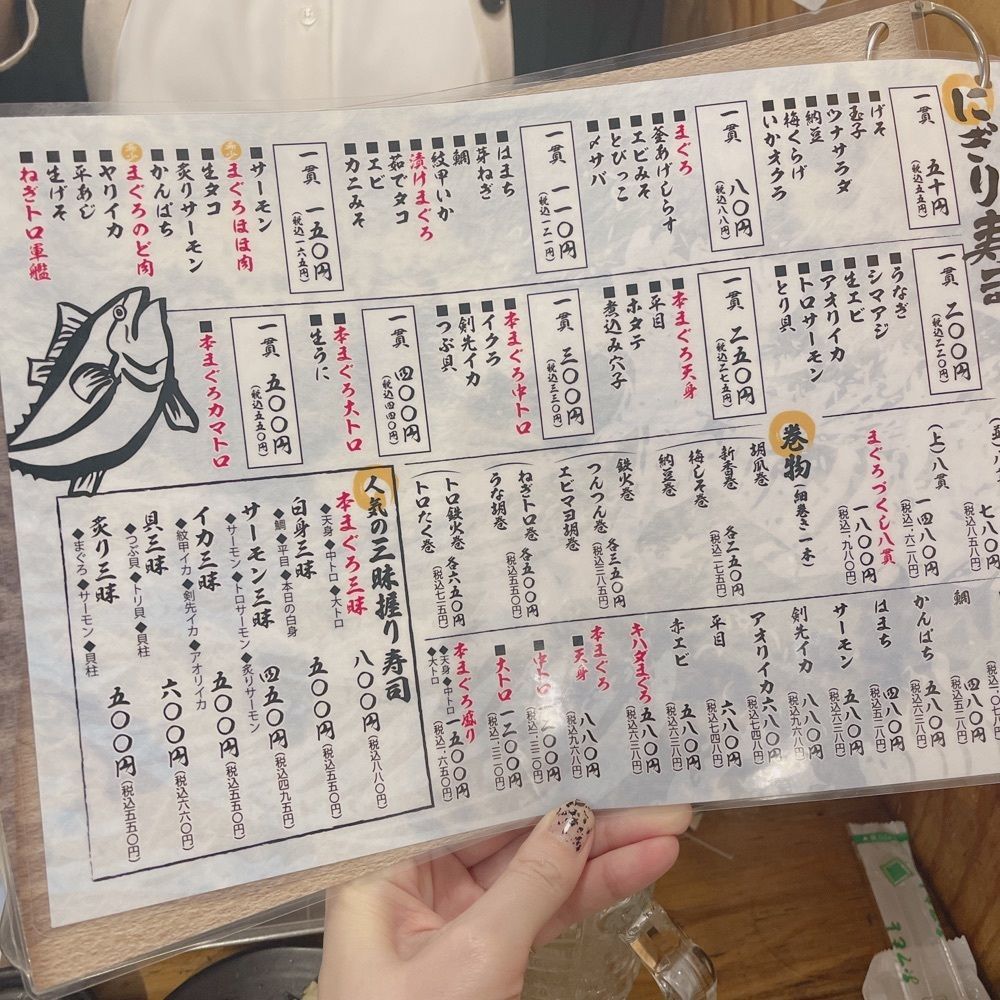 にぎり寿司
一貫 五十円
(税込五五円)
■げそ
■玉子
■ウナサラダ
■納豆
■梅くらげ
■いかオクラ
一貫 八〇円
(税込八八円)
■まぐろ
■釜あげしらす
■エビみそ
■とびっこ
■〆サバ
一貫 一一〇円
(税込一二一円)
■はまち
■芽ねぎ
■鯛
■紋甲いか
■漬けまぐろ
■茹でタコ
■エビ
■カニみそ
一貫 一五〇円
(税込一六五円)
■サーモン
■まぐろほほ肉
■生タコ
■炙りサーモン
■かんぱち
■まぐろのど肉
■ヤリイカ
■平あじ
■生げそ
■ねぎトロ軍艦
一貫 二〇〇円
(税込二二〇円)
■うなぎ
■シマアジ
■生エビ
■アオリイカ
■トロサーモン
■とり貝
一貫 二五〇円
(税込二七五円)
■本まぐろ天身
■平目
■ホタテ
■煮込み穴子
一貫 三〇〇円
(税込三三〇円)
■本まぐろ中トロ
■イクラ
■剣先イカ
■つぶ貝
一貫 四〇〇円
(税込四四〇円)
■本まぐろ大トロ
■生うに
一貫 五〇〇円
(税込五五〇円)
■本まぐろカマトロ
七八〇円
(上)八貫 一四八〇円
(税込一、六二八円)
まぐろづくし八貫 一八〇〇円
(税込一、九八〇円)
巻物(細巻き一本)
胡瓜巻
新香巻
梅しそ巻
納豆巻
各二五〇円
(税込二七五円)
鉄火巻
つんつん巻
エビマヨ胡巻
各三五〇円
(税込三八五円)
ねぎトロ巻
うな胡巻
各五〇〇円
(税込五五〇円)
トロ鉄火巻
トロたく巻
各六五〇円
(税込七一五円)
鯛 四八〇円
(税込五二八円)
かんぱち 五八〇円
(税込六三八円)
はまち 四八〇円
(税込五二八円)
サーモン 五八〇円
(税込六三八円)
剣先イカ 八八〇円
(税込九六八円)
アオリイカ 六八〇円
(税込七四八円)
平目 六八〇円
(税込七四八円)
赤エビ 五八〇円
(税込六三八円)
キハダまぐろ 五八〇円
(税込六三八円)
本まぐろ
■天身 八八〇円
(税込九六八円)
■中トロ 一二〇〇円
(税込一、三二〇円)
■大トロ 一二〇〇円
(税込一、三二〇円)
本まぐろ盛り 一五〇〇円
◆天身◆中トロ
◆大トロ
(税込一、六五〇円)
人気の三昧握り寿司
本まぐろ三昧 八〇〇円
(税込八八〇円)
◆天身◆中トロ◆大トロ
白身三昧 五〇〇円
(税込五五〇円)
◆鯛◆平目◆本日の白身
サーモン三昧 四五〇円
(税込四九五円)
◆サーモン◆トロサーモン◆炙りサーモン
イカ三昧 五〇〇円
(税込五五〇円)
◆紋甲イカ◆剣先イカ◆アオリイカ
貝三昧 六〇〇円
(税込六六〇円)
◆つぶ貝◆トリ貝◆貝柱
炙り三昧 五〇〇円
(税込五五〇円)
◆まぐろ◆サーモン◆貝柱